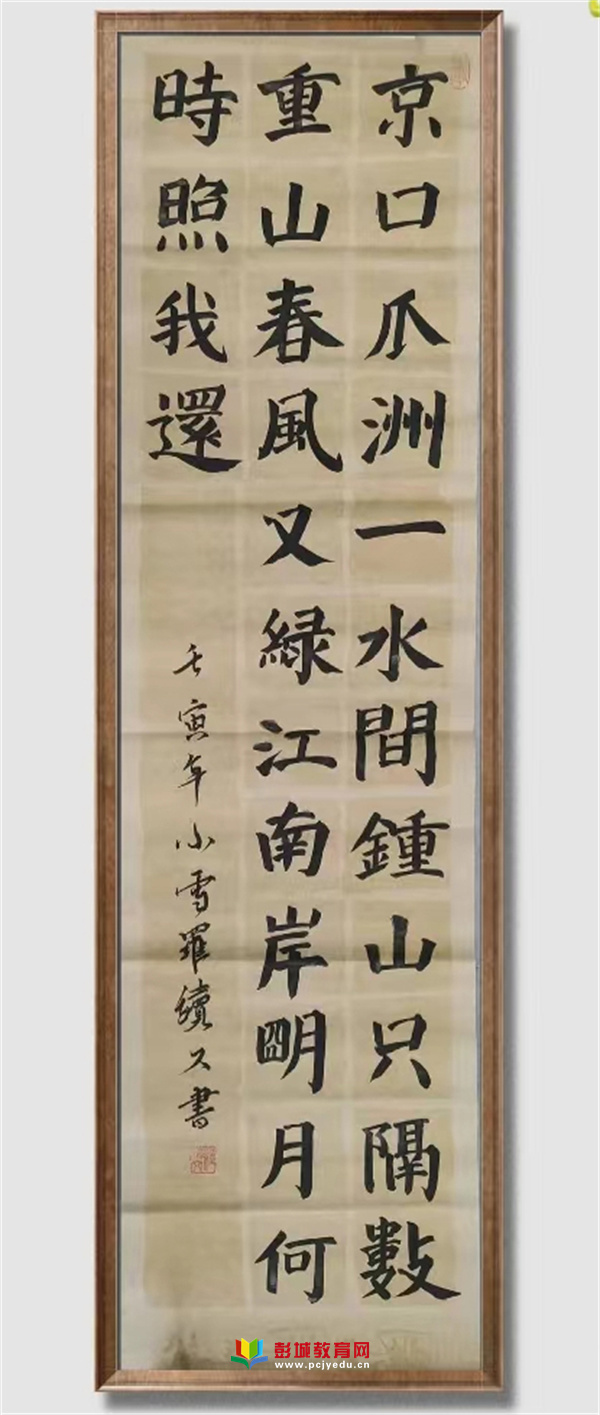 京口爪洲一水間鍾山只隔數
重山春風又緑江南岸明月何
時照我還
壬寅年小雪羅續久書
彭城教育网
www.pcjyedu.cn